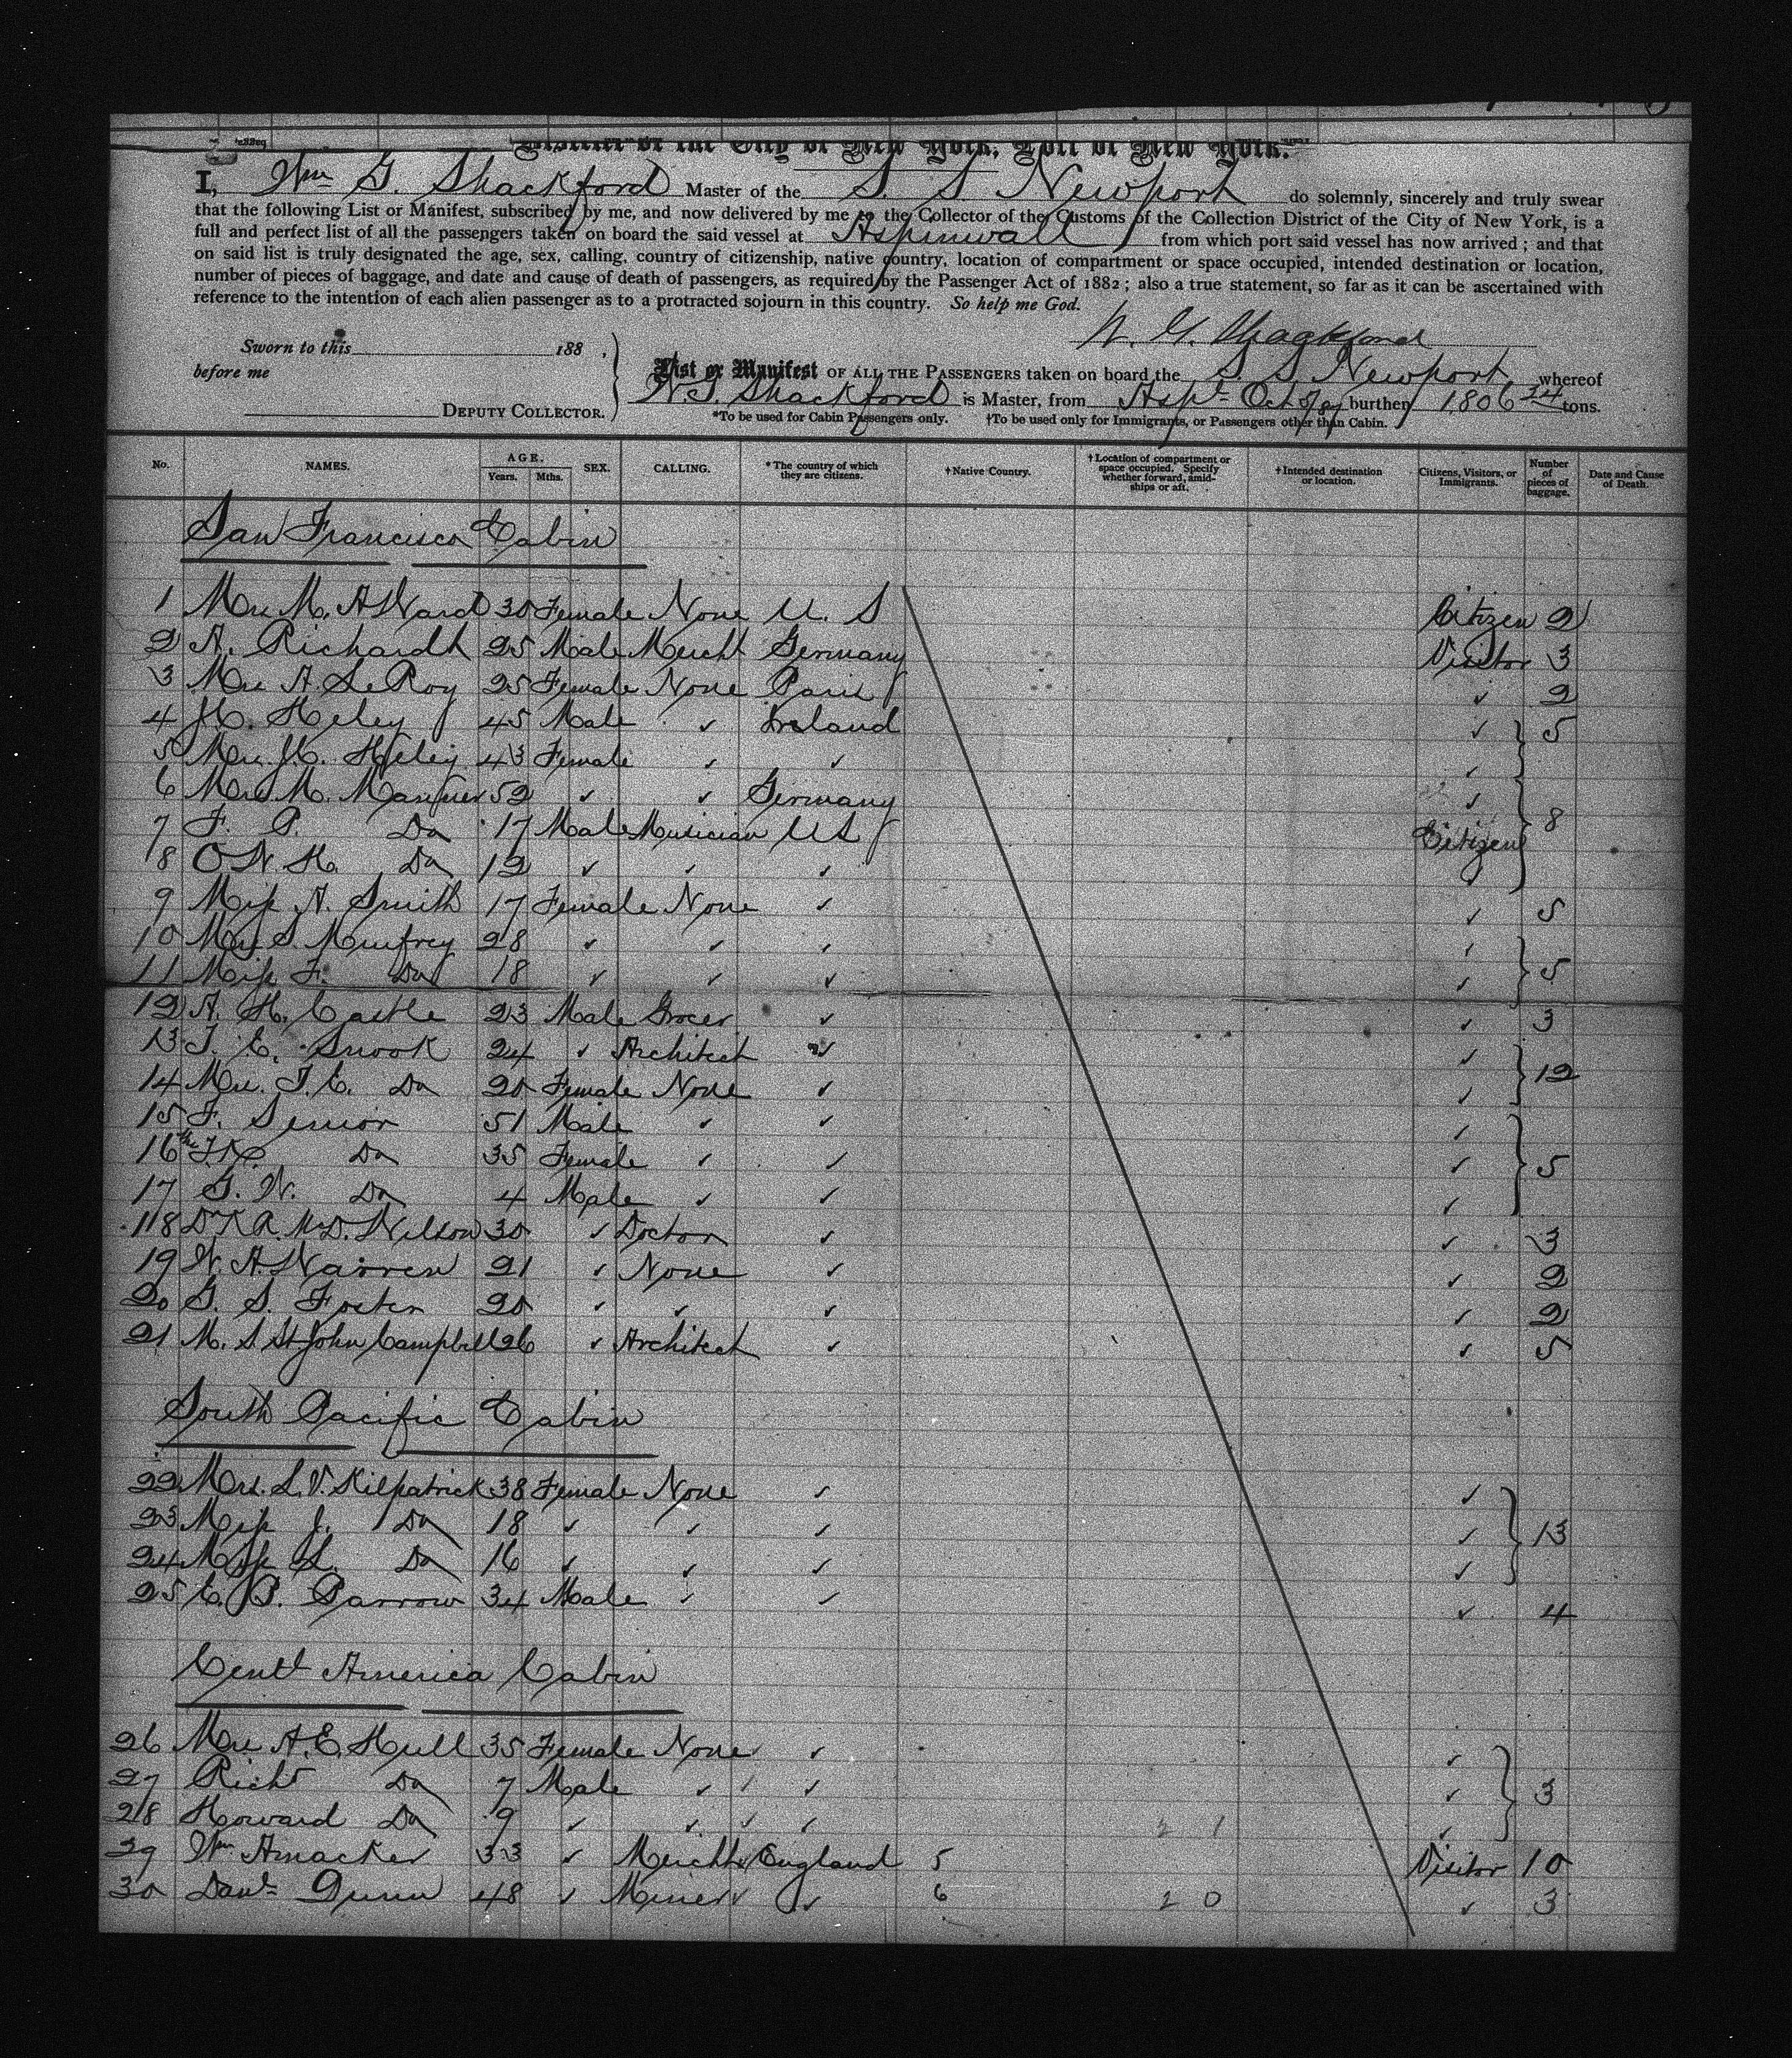 District of the City of New York, Port of New York.
I, Wm G. Shackford Master of the S. S Newport do solemnly, sincerely and truly swear
that the following List or Manifest, subscribed by me, and now delivered by me to the Collector of the Customs of the Collection District of the City of New York, is a
full and perfect list of all the passengers taken on board the said vessel at Aspinwall from which port said vessel has now arrived; and that
on said list is truly designated the age, sex, calling, country of citizenship, native country, location of compartment or space occupied, intended destination or location,
number of pieces of baggage, and date and cause of death of passengers, as required by the Passenger Act of 1882; also a true statement, so far as it can be ascertained with
reference to the intention of each alien passenger as to a protracted sojourn in this country. So help me God.
W. G. Shackford
Sworn to this 188 ,
before me
DEPUTY COLLECTOR.
List or Manifest OF ALL THE PASSENGERS taken on board the S. S Newport whereof
W. G. Shackford is Master, from Aspl Oct 5/84 burthen 1,806 34 tons.
*To be used for Cabin Passengers only. †To be used only for Immigrants, or Passengers other than Cabin.
No. NAMES. AGE. Years. Mths. SEX. CALLING. *The country of which they are citizens. †Native Country. †Location of compartment or space occupied. Specify whether forward, amidships or aft. †Intended destination or location. Citizens, Visitors, or Immigrants. Number of pieces of baggage. Date and Cause of Death.
San Francisco Cabin
1 Mrs M. A Ward 30 Female None U. S Citizen 2
2 A. Richardt 25 Male Mercht Germany Visitor 3
3 Mrs A. Le Roy 25 Female None Paris ✓ 2
4 J.C. Heley 45 Male ✓ Ireland ✓ 5
5 Mrs. J.C. Heley 43 Female ✓ ✓ ✓
6 Mrs M. 52 ✓ ✓ Germany ✓
7 F. P. Do 17 Male Musician US Citizen 8
8 O. W. H. Do 12 ✓ ✓ ✓ ✓
9 Miss A. Smith 17 Female None ✓ ✓ 5
10 Mrs S. Mumfrey 28 ✓ ✓ ✓ ✓
11 Miss F. Do 18 ✓ ✓ ✓ ✓ 5
12 A. H. Castle 23 Male Grocer ✓ ✓ 3
13 T. E. Snook 24 ✓ Architect ✓ ✓
14 Mrs. T. E. Do 20 Female None ✓ ✓ 12
15 F. Senior 51 Male ✓ ✓ ✓
16 Do 35 Female ✓ ✓ ✓ 5
17 G. W. Do 4 Male ✓ ✓ ✓
18 Dr R. A. McD. Wilson 30 ✓ Doctor ✓ ✓ 3
19 W. A. Warren 21 ✓ None ✓ ✓ 2
20 G. S. Foster 20 ✓ ✓ ✓ ✓ 2
21 M. S St. John Campbell 26 ✓ Architect ✓ ✓ 5
South Pacific Cabin
22 Mrs. L. V. Kilpatrick 38 Female None ✓ ✓
23 Miss J. Do 18 ✓ ✓ ✓ ✓ 13
24 Miss L. Do 16 ✓ ✓ ✓ ✓
25 E. B. Parrow 34 Male ✓ ✓ ✓ 4
Centl America Cabin
26 Mrs A. E. Hull 35 Female None ✓ ✓
27 Richd Do 7 Male ✓ ✓ ✓ 3
28 Howard Do 9 ✓ ✓ ✓ 2 1 ✓
29 Wm Amacker 33 ✓ Mercht England 5 Visitor 10
30 Danl Dunn 48 ✓ Miner ✓ 6 2 0 ✓ 3